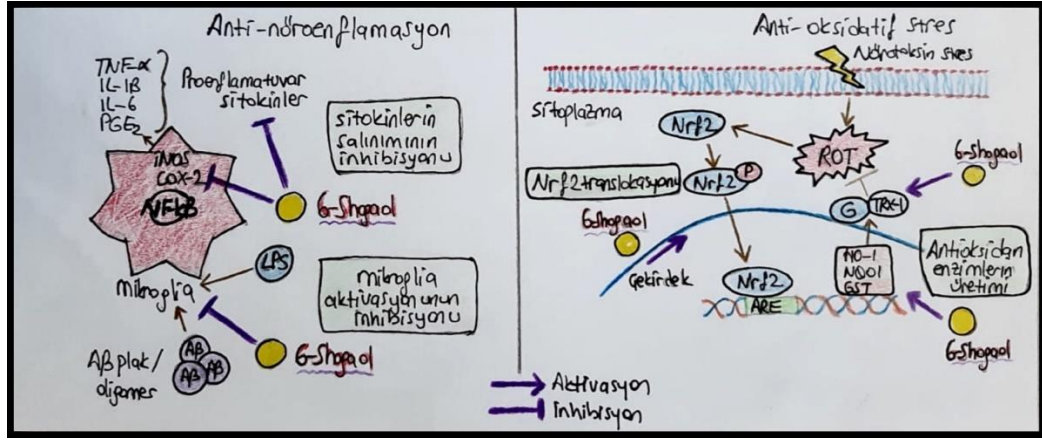 Anti-nöroenflamasyon
TNF-α
IL-1B
IL-6
PGE2
Proenflamatuvar
sitokinler
iNOS
COX-2
NFkB
sitokinlerin
salınımının
inhibisyonu
6-Shogaol
LPS
Mikroglia
mikroglia
aktivasyonunun
inhibisyonu
6-Shogaol
Aβ plak/
oligomer
Aβ
Aβ
Aβ
Anti-oksidatif stres
Nörotoksin stres
Sitoplazma
Nrf2
ROT
6-Shogaol
Nrf2 translokasyonu
Nrf2
P
G
TRX-1
6-Shogaol
Çekirdek
HO-1
NQO1
GST
Antioksidan
enzimlerin
üretimi
Nrf2
ARE
6-Shogaol
Aktivasyon
İnhibisyon